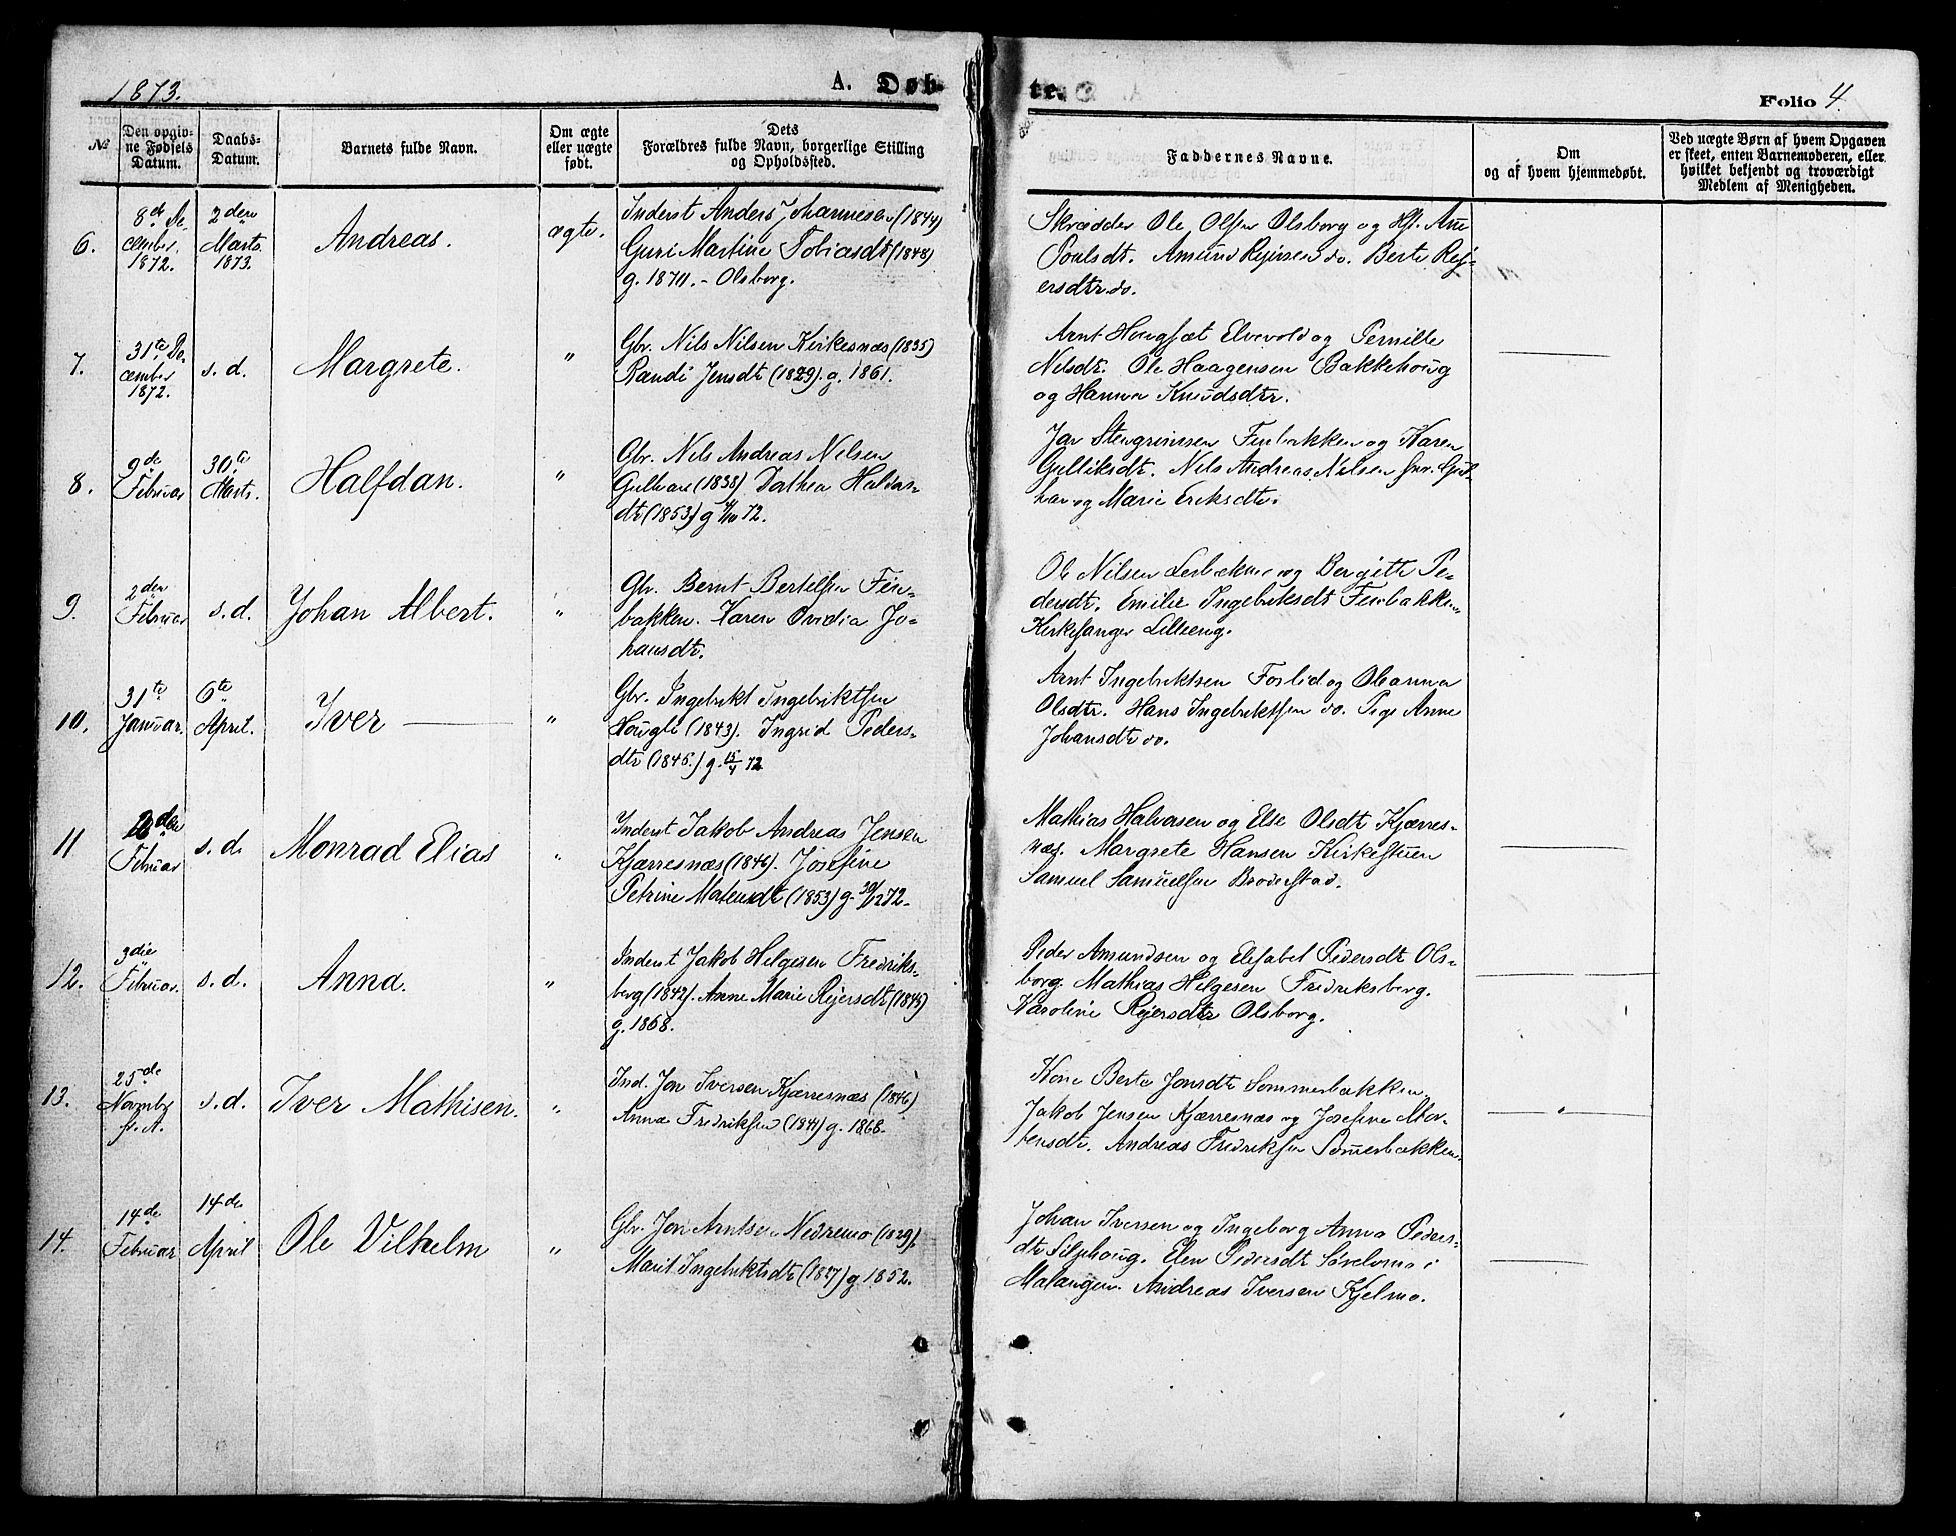 1873.
A. Døb
te.
Folio 4.
№
Den opgiv-
ne Fødsels
Datum.
Daabs-
Datum.
Barnets fulde Navn.
Om ægte
eller uægte
født.
Dets
Forældres fulde Navn, borgerlige Stilling
og Opholdssted.
Faddernes Navne.
Om
og af hvem hjemmedøbt.
Ved uægte Børn af hvem Opgaven
er skeet, enten Barnemoderen, eller
hvilket bekjendt og troværdigt
Medlem af Menigheden.
6.
8de De-
cember
1872.
2den
Marts
1873.
Andreas.
ægte.
Inderst Anders Johannesen (1844)
Guri Martine Tobiasdt (1848)
g. 1870. - Olsborg.
Skrædder Ole Olsen Olsborg og Hst. Ane
Poulsdt. Amund Rejersen do. Berte Rej-
ersdtr do.
7.
31te De-
cember
1872.
s. d.
Margrete.
"
Gbr. Nils Nilsen Kirkesnæs (1835)
Randi Jensdt (1829). g. 1861.
Arnt Hougsæt Elvevold og Pernille
Nilsdt. Ole Haagensen Bakkehoug
og Hanna Knudsdtr.
8.
9de
Februar
30te
Marts.
Halfdan.
"
Gbr. Nils Andreas Nilsen
(1838). Dorthea Haldas-
dt (1853) g 72.
Jon Stengrimsen Finbakken og Karen
Gulliksdt. Nils Andreas Nilsen
og Marie Eriksdtr.
9.
2den
Februar
s. d.
Johan Albert.
"
Gbr. Bernt Bertelsen Fin-
bakken. Karen Ovidia Jo-
hansdt.
Ole Nilsen og Bergitte Pe-
dersdt. Emilie Ingebriktsdt Finbakken
Kirkesanger Lilleeng.
10.
31te
Januar.
6te
April.
Iver
"
Gbr. Ingebrikt Ingebriktsen
Hougli (1843). Ingrid Peders-
dtr (1845.) g. 15/4 72
Arnt Ingebriktsen Foslid og Oleanna
Olsdtr. Hans Ingebriktsen do. Pige Anne
Johansdt do.
11
Februar
s. d.
Monrad Elias
"
Inderst Jakob Andreas Jensen
Kjærresnæs (1846). Josefine
Petrine Mortensdt (1853) g. 30/12 72.
Mathias Halvorsen og Else Olsdt Kjærres-
næs. Margrete Hansen Kirkestuen
Samuel Samuelsen Broderstad.
12.
3die
Februar.
s. d.
Anna.
"
Inderst Jakob Helgesen Fredriks-
berg (1842). Anne Marie Rejersdt (1845)
g. 1868.
Peder Amundsen og Elisabet Pedersdt Ols-
borg. Mathias Helgesen Fredriksberg.
Karoline Rejersdtr Olsborg.
13.
25de
Novmbr
f. A.
s. d.
Iver Mathisen.
"
Ind. Jon Iversen Kjærresnæs (1846)
Anna Fredriksen (1841) g. 1868.
Kone Berte Jonsdt Sommerbakken.
Jakob Jensen Kjærresnæs og Josefine Mor-
tensdt. Andreas Fredriksen Sommerbakken.
"
14.
14de
Februar
14de
April
Ole Vilhelm
"
Gbr. Jon Arntsen Nedremo (1829).
Marit Ingebriktsdt (1827) g 1852.
Johan Iversen og Ingeborg Anna Peders-
dt Seljehoug. Elen Pedersdt Sørelvmo i
Malangen. Andreas Iversen Kjelmo.